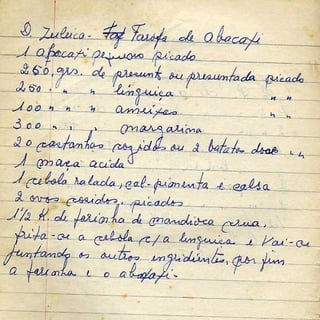 D. Zuleica - Farofa de abacaxi
1 abacaxi pequeno picado
250, grs. de presunt. ou presuntada picado
250. " " linguiça " "
100 " " ameixas " "
300 " " margarina
20 castanhas cozidas ou 2 batatas doce "
1 maça acida
1 cebola ralada, sal-pimenta e salsa
2 ovos cosidos, picados
1½ K. de farinha de mandioca crua.
frita-se a cebola c/a linguiça e vai-se
juntando os outros ingridientes, por fim
a farinha e o abaxaxi.